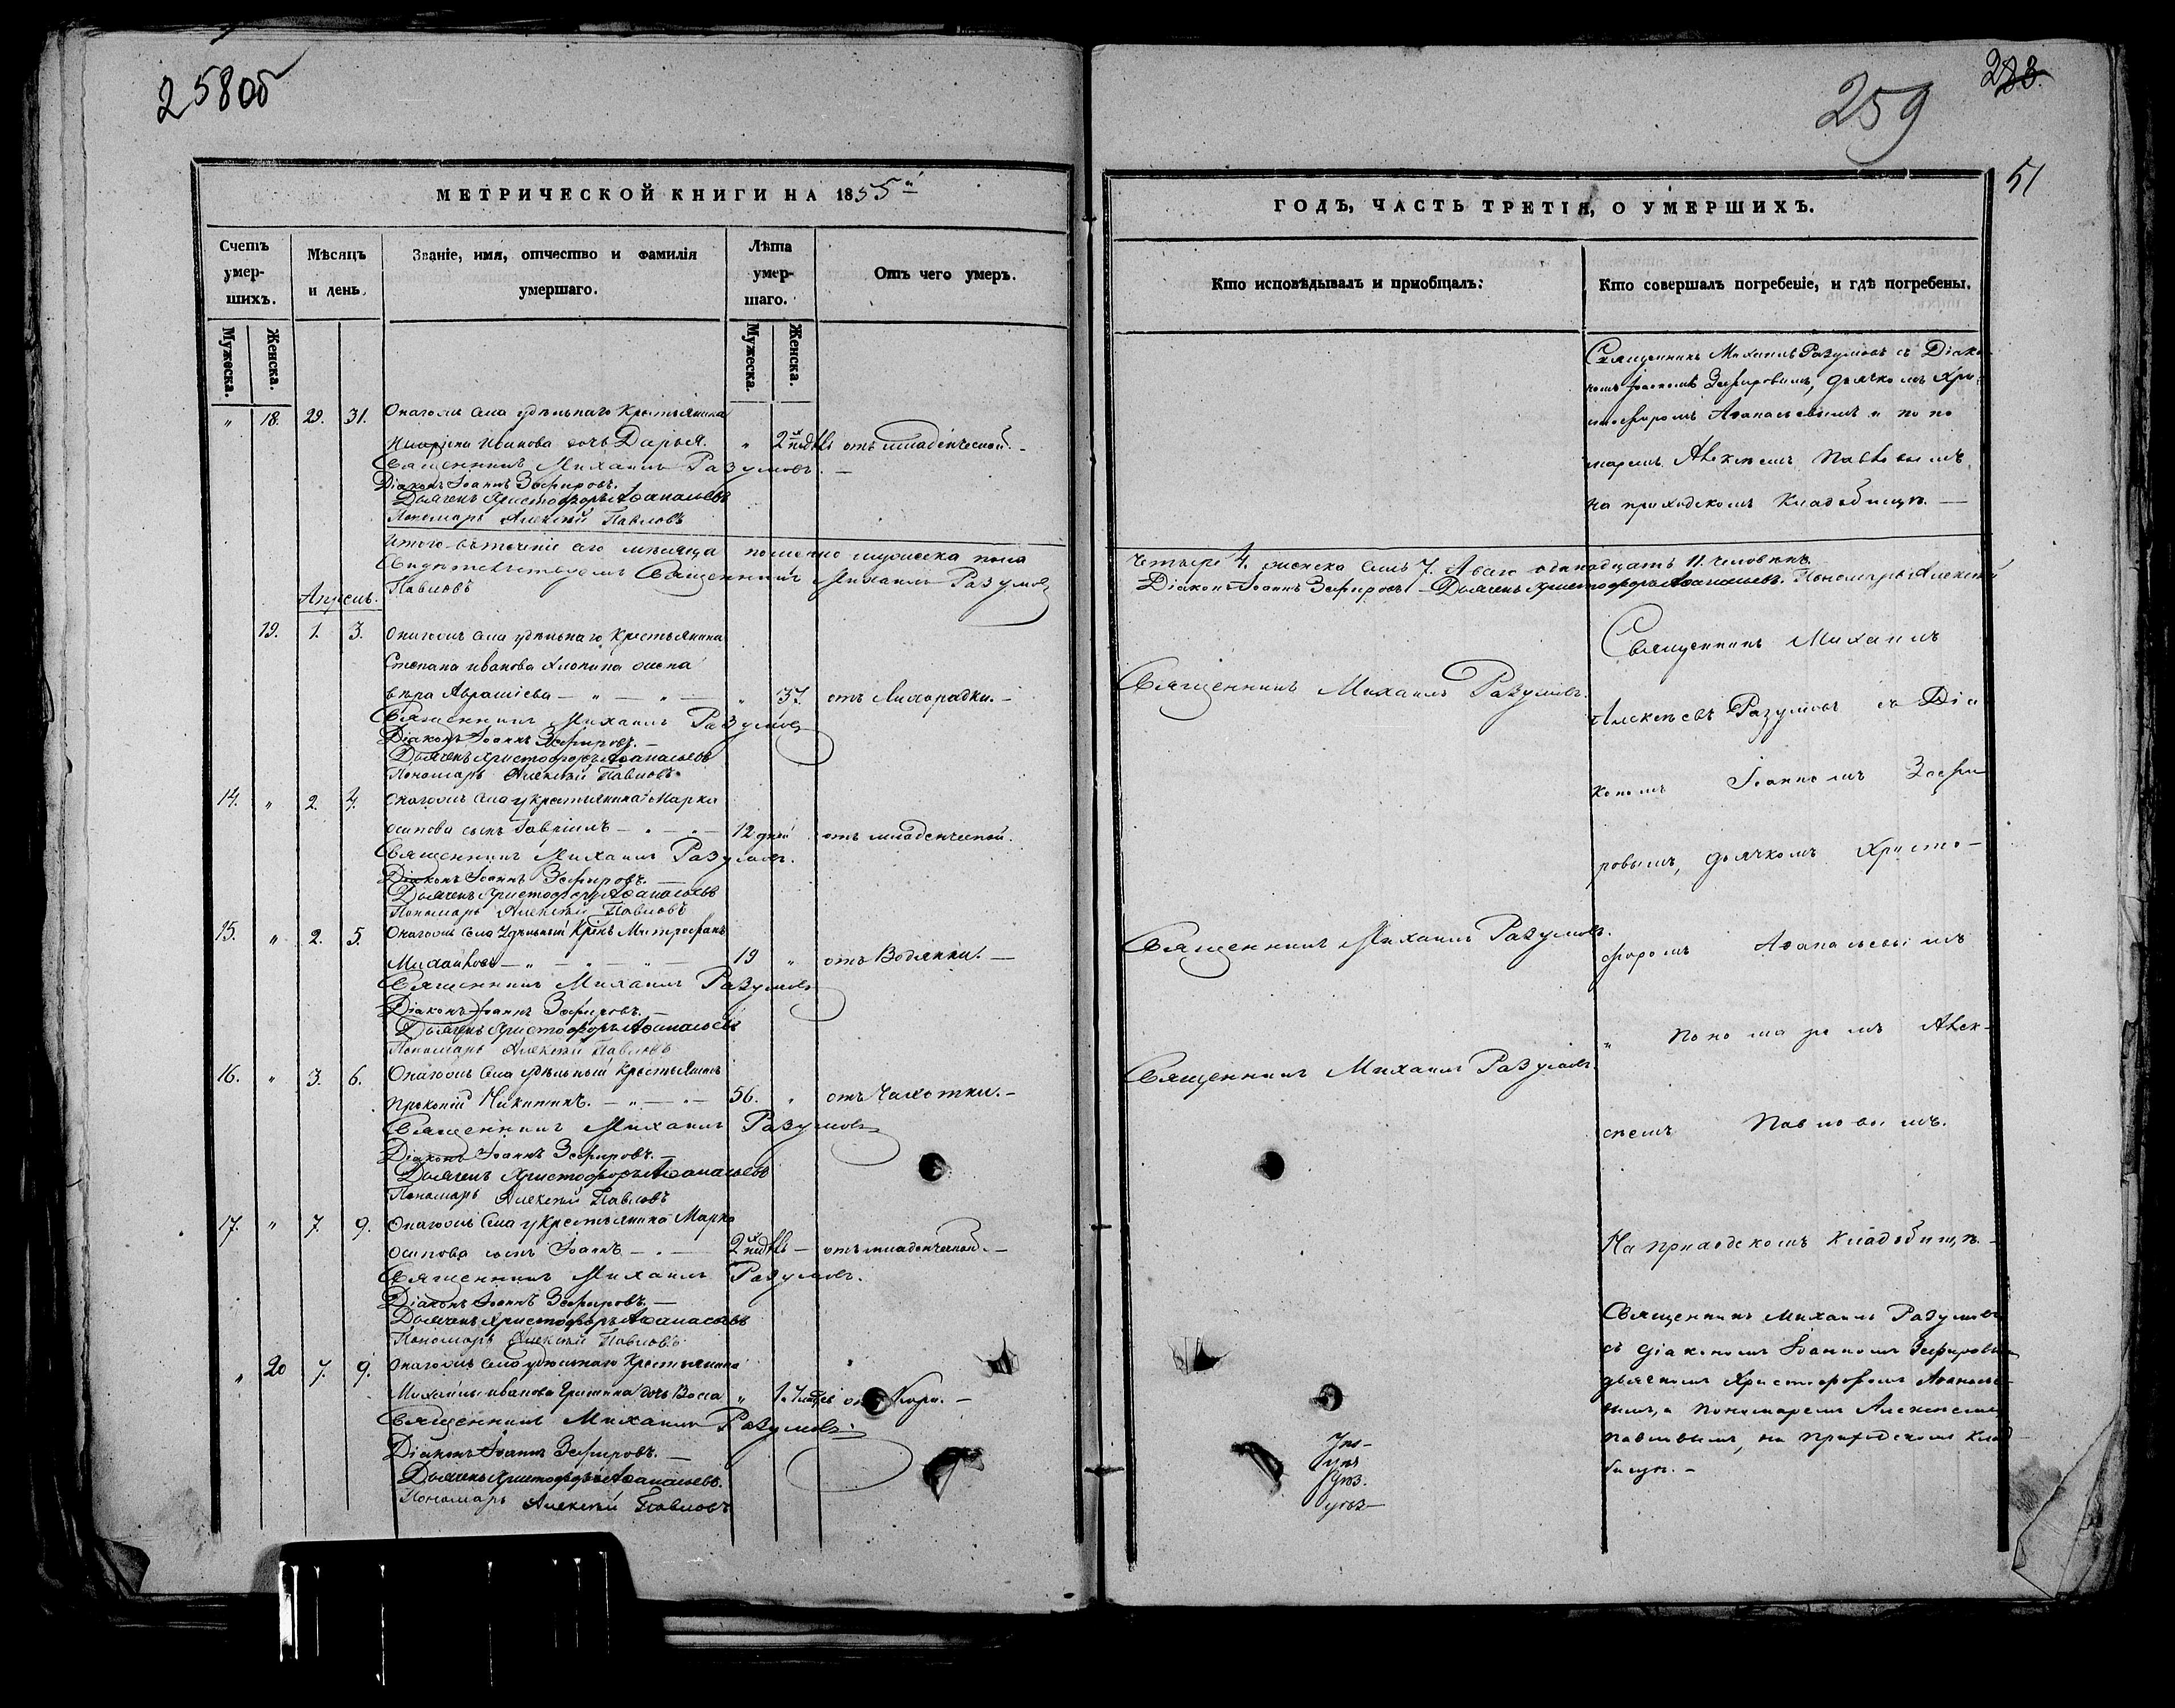 258об
МЕТРИЧЕСКОЙ КНИГИ НА 1855й
Счетъ умер-шихъ.
Мѣсяцъ и день.
Званіе, имя, отчество и фамилія умершаго.
Лѣта умер-шаго.
Отъ чего умеръ.
Мужеска.
Женска.
Мужеска.
Женска.
" 18. 29. 31. Онагожъ села удѣльнаго Крестьянина
Иванова дочь Дарья. " 2хъ недѣль отъ младенческой. —
Священникъ Михаилъ Разумовъ. —
Діаконъ Іоаннъ Зефировъ.
Дьячекъ Христофоръ Аѳанасьевъ
Пономарь Алексѣй Павловъ
Итого въ теченіе сего мѣсяца померло мужеска пола
Свидѣтельствуемъ Священникъ Михаилъ Разумовъ
Павловъ
Апрель.
19. 1. 3. Онагожъ села удѣльнаго Крестьянина
Степана Иванова жена
Вѣра — " — " — " 37. отъ Лихорадки. —
Священникъ Михаилъ Разумовъ
Діаконъ Іоаннъ Зефировъ. —
Дьячекъ Христофоръ Аѳанасьевъ
Пономарь Алексѣй Павловъ
14. " 2. 4. Онагожъ села у Крестьянина Марка
Осипова сынъ Гавріилъ — " — " — 12 дней отъ младенческой.
Священникъ Михаилъ Разумовъ.
Діаконъ Іоаннъ Зефировъ. —
Дьячекъ Христофоръ Аѳанасьевъ
Пономарь Алексѣй Павловъ
15. " 2. 5. Онагожъ села Удѣльный Крѣнъ Митрофанъ
Михайловъ — " — " — " — 19 " отъ Водянки. —
Священникъ Михаилъ Разумовъ
Діаконъ Іоаннъ Зефировъ. —
Дьячекъ Христофоръ Аѳанасьевъ
Пономарь Алексѣй Павловъ
16. " 3. 6. Онагожъ села удѣльный Крестьянинъ
Прокопій Никитинъ. — " — " — 56. " отъ Чахотки. —
Священникъ Михаилъ Разумовъ
Діаконъ Іоаннъ Зефировъ. —
Дьячекъ Христофоръ Аѳанасьевъ
Пономарь Алексѣй Павловъ
17. " 7. 9. Онагожъ села у Крестьянина Марка
Осипова сынъ Іоаннъ — " — 2хъ недѣль — отъ младенческой. —
Священникъ Михаилъ Разумовъ.
Діаконъ Іоаннъ Зефировъ. —
Дьячекъ Христофоръ Аѳанасьевъ
Пономарь Алексѣй Павловъ
" 20 7. 9. Онагожъ села удѣльнаго Крестьянина
Михаилы Иванова дочь " Кори. —
Священникъ Михаилъ Разумовъ.
Діаконъ Іоаннъ Зефировъ. —
Дьячекъ Христофоръ Аѳанасьевъ.
Пономарь Алексѣй Павловъ
259
51
ГОДЪ, ЧАСТЬ ТРЕТІЯ, О УМЕРШИХЪ.
Кто исповѣдывалъ и пріобщалъ:
Кто совершалъ погребеніе, и гдѣ погребены.
Священникъ Михаилъ Разумовъ съ Діако-
номъ Іоанномъ Зефировымъ, дьячкомъ Хри-
стофоромъ Аѳанасьевымъ и поно
маремъ Алексѣемъ Павловымъ
на приходскомъ Кладбищѣ. —
четыре 4. женска семь 7. А всего одинадцать 11. человѣкъ.
Діаконъ Іоаннъ Зефировъ — Дьячекъ Христофоръ Аѳанасьевъ. Пономарь Алексѣй
Священникъ Михаилъ Разумовъ.
Священникъ Михаилъ Разумовъ.
Священникъ Михаилъ Разумовъ.
Священникъ Михаилъ
Алексѣевъ Разумовъ съ Діа
кономъ Іоанномъ Зефи
ровымъ, дьячкомъ Христо-
форомъ Аѳанасьевымъ
и пономаремъ Алек-
сѣемъ Павловымъ.
На приходскомъ кладбищѣ. —
Священникъ Михаилъ Разумовъ
съ діакономъ Іоанномъ Зефировымъ
дьячкомъ Христофоромъ Аѳанасье-
вымъ, и пономаремъ Алексѣемъ
Павловымъ, на приходскомъ клад-
бищѣ. —